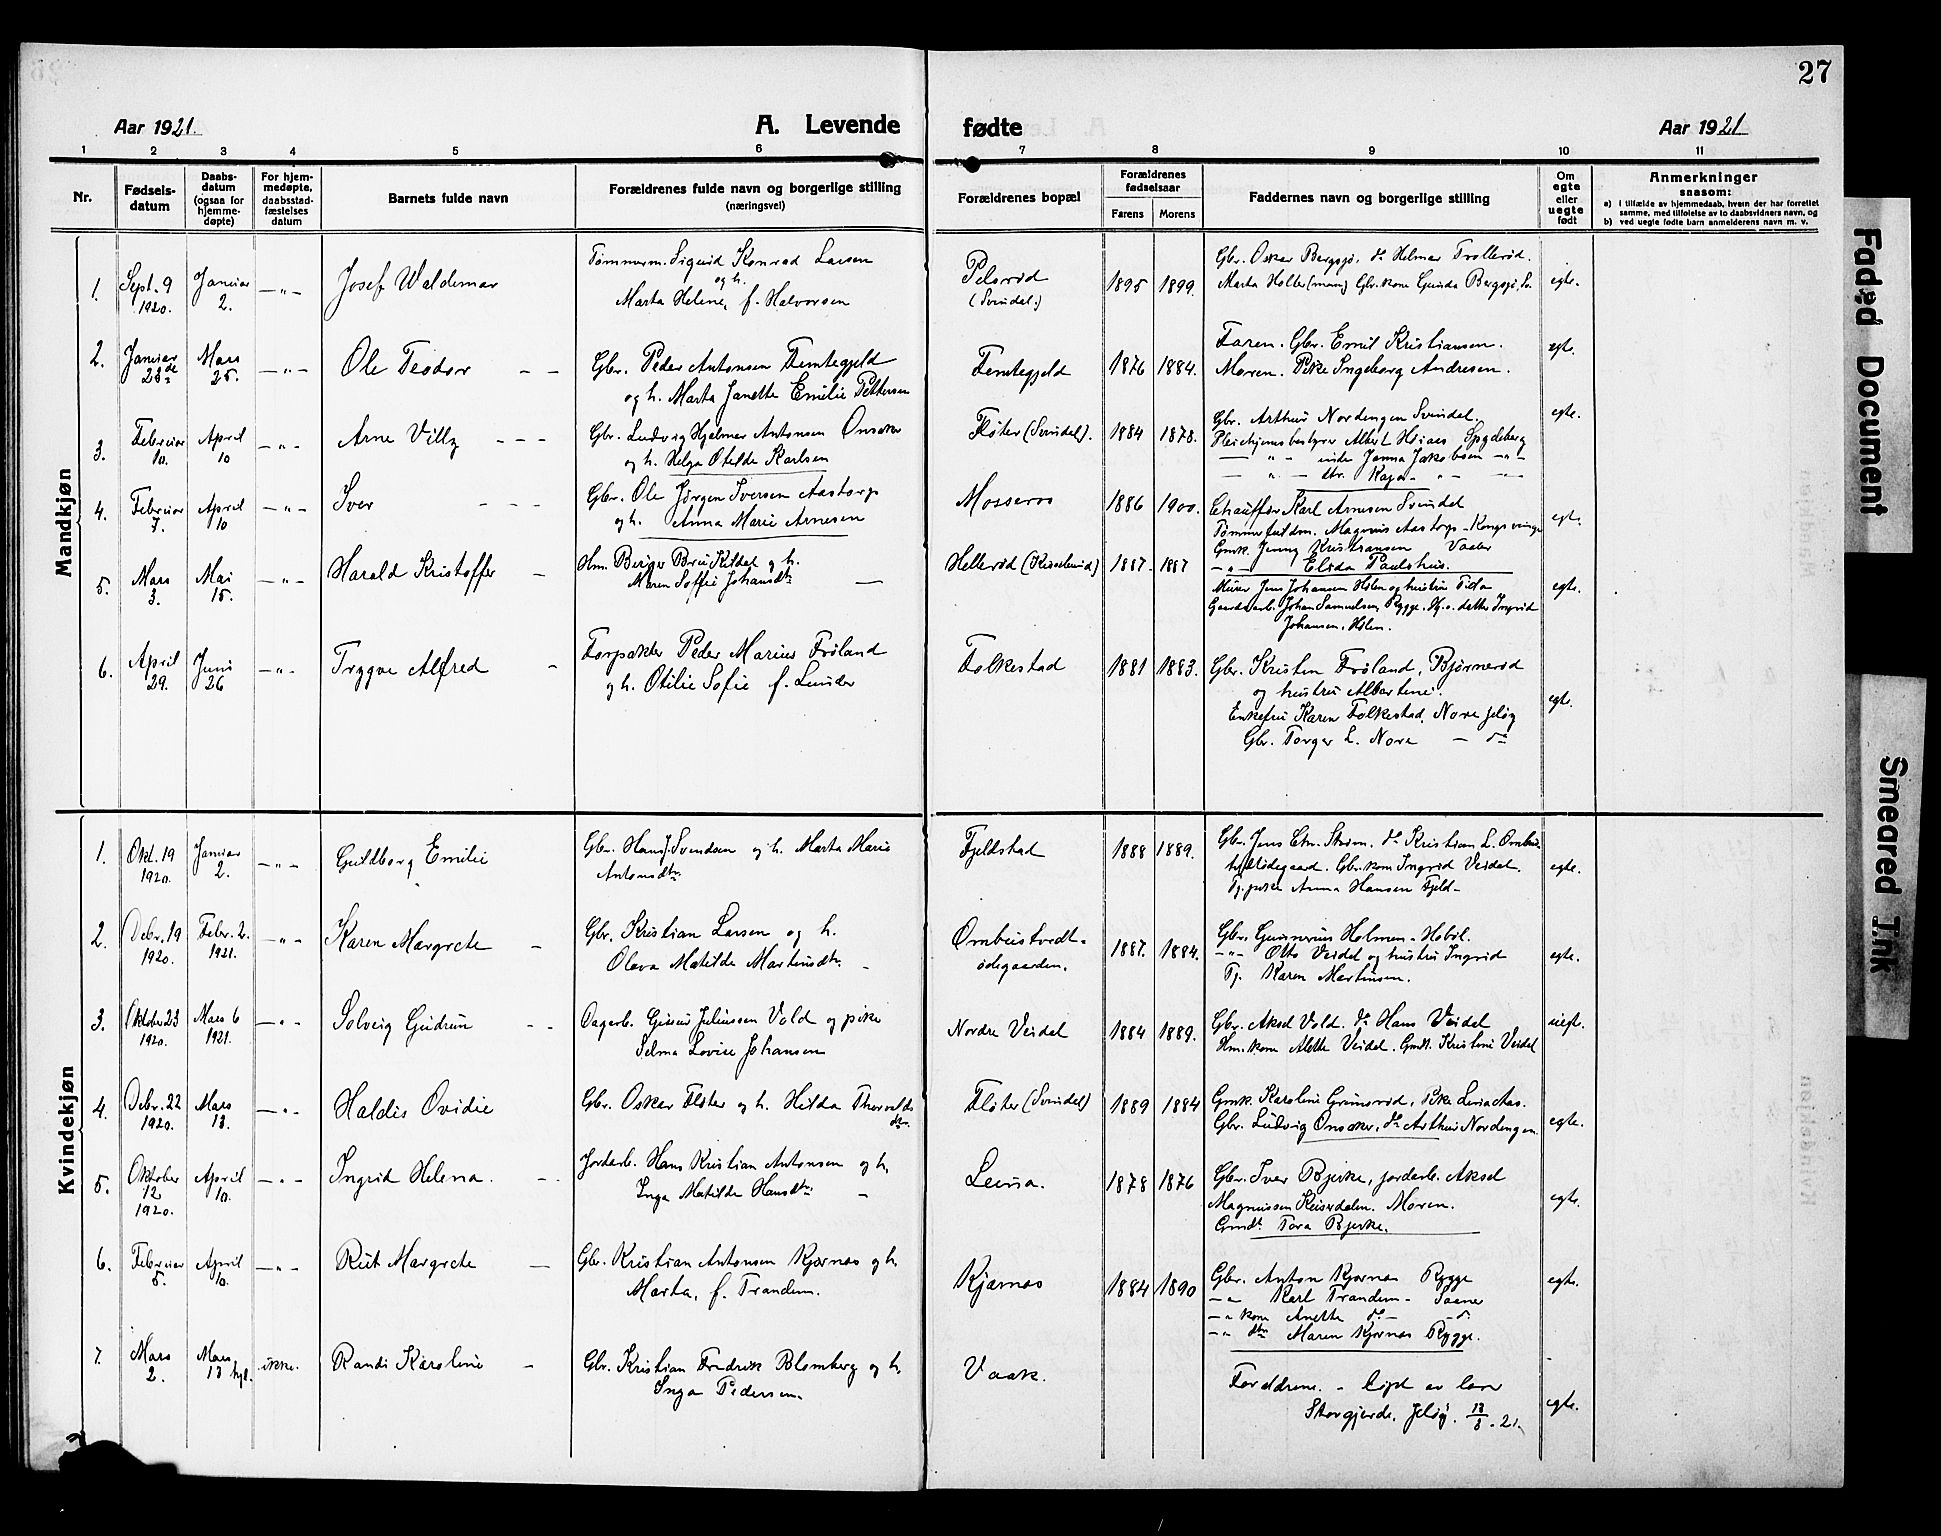 27
Aar 1921.
A. Levende fødte
Aar 1921
1 2 3 4 5 6 7 8 9 10 11
Nr.
Fødsels-
datum
Daabs-
datum
(ogsaa for
hjemme-
døpte)
For hjem-
medøpte,
daabsstad-
fæstelses
datum
Barnets fulde navn
Forældrenes fulde navn og borgerlige stilling
(næringsvei)
Forældrenes bopæl
Forældrenes
fødselsaar
Farens Morens
Faddernes navn og borgerlige stilling
Om
egte
eller
uegte
født
Anmerkninger
saasom:
a) i tilfælde av hjemmedaab, hvem der har forrettet
samme, med tilføielse av to daabsvidners navn, og
b) ved uegte fødte barn anmelderens navn m. v.
Mandkjøn
1. Sept. 9 1920. Januar 2. —„— Josef Waldemar
Tømmerm. Sigurd Konrad Larsen
og h.
Marta Helene, f. Halvorsen
Pelsrød
(Svindal.)
1895 1899.
Gbr. Oskar Bergsjø, do Helmer Trollerød.
Marta Holler (mam) Gbr. kone Gunda Bergsjø, Sv.
egte.
2. Januar 23de Mars 25. —„— Ole Teodor
Gbr. Peder Antonsen Femtegjeld
og h. Marta Janette Emilie Pettersen
Femtegjeld
1876 1884.
Faren. Gbr. Emil Kristiansen.
Moren. Pike Ingeborg Andresen.
egt.
3. Februar 10. April 10 —„— Arne Villy
Gbr. Ludvig Hjalmar Antonsen Onsaker
og h. Helga Otilde Karlsen
Fløter (Svindal).
1884 1878.
Gbr. Arthur Nordengen Svindal.
Pleiehjemsbestyrer Albert Spydeberg
— „ — Janna Jakobsen —„—
— „ — dtr. Kaja — „ —
egte.
4. Februar 7. April 10 —„— Iver
Gbr. Ole Jørgen Iversen Aastorp
og h. Anna Marie Arnesen
Mosseros
1886 1900.
Chauffør Karl Arnesen Svindal
Tømmerfuldm. Magnus Aastorp – Kongsvinger
Gmk. Jenny Kristiansen Vaaler
—„— Elida Paulshus.
egt.
5. Mars 3. Mai 15. —„— Harald Kristoffer
Hm. Birger Kildal og h.
Maren Soffie Johansdtr.
Hellerød (Kisselund)
1887. 1887
Murer Jens Johansen Hølen og hustru Tilda
Gaardsarb. Johan Samuelsen, Rygge. H. o. datter Ingrid
Johansen, Hølen.
egte.
6. April 29. Juni 26 —„— Trygve Alfred
Forpakter Peder Marius Frøland
og h. Otilie Sofie f. Lunder
Folkestad
1881 1883.
Gbr. Kristen Frøland, Bjørnerød
og hustru Albertine.
Enkefru Karen Folkestad, Nore Jeløy
Gbr. Torger L. Nore — do
egt.
Kvindekjøn
1. Okt. 19 1920. Januar 2. —„— Guldborg Emilie
Gbr. Hans J. Svendsen og h. Marta Marie
Antonsdtr.
Fjeldstad
1888 1889.
Gbr. Jens Chr. Strøm. do Kristian L. Ombus-
tvedtødegaard. Gbr. kone Ingrid Veidal.
Tj. pike Anna Hansen Fjeld –
egte.
2. Debr. 19 1920. Febr. 2. 1921. —„— Karen Margrete
Gbr. Kristian Larsen og h.
Olava Matilde Martinsdtr.
Ombustvedt-
ødegaarden.
1887. 1884.
Gbr. Gunnerius Holmen – Hobøl.
—„— Otto Veidal og hustru Ingrid
Tj. Karen Martinsen.
egte.
3. Oktober 23 1920. Mars 6 1921. —„— Solveig Gudrun
Dagarb. Julinssen Vold og pike
Selma Lovise Johansen
Nordre Veidal
1884 1889.
Gbr. Aksel Vold. do Hans Veidal
Hm. kone Alette Veidal. Gmk. Kristine Veidal
uegt.
4. Debr. 22 1920. Mars 13. —„— Haldis Ovidie
Gbr. Oskar Fløter og h. Hilda Thorvalds
dtr.
Fløter (Svindal)
1889 1884
Gmk. Karoline Grimsrød, Pike Aas.
Gbr. Ludvig Onsaker, do Arthur Nordengen.
egte.
5. Oktober 12 1920. April 10. —„— Ingrid Helena.
Jordarb. Hans Kristian Antonsen og h.
Inga Matilde Hansdtr.
Leina.
1878 1876
Gbr. Iver Bjerke, jordarb. Aksel
Magnussen Keiserdalen. Moren.
Gmdt. Tora Bjerke.
egte.
6. Februar 5. April 10. —„— Rut Margrete
Gbr. Kristian Antonsen Kjærnes og h.
Marta, f. Trandem.
Kjærnes
1884 1890
Gbr. Anton Kjærnes Rygge
—„— Karl Trandem – Saaner
—„ kone Anette do – – do
—„— dtr. Maren Kjærnes Rygge.
egte.
7. Mars 2. Mars 13 kyl. ikke. Randi Karoline
Gbr. Kristian Fredrik Blomberg og h.
Inga Pedersen.
Vaak.
Forældrene. – døpt av lærer
Storgjerde, Jeløy. 13/3. 21.
egte.
Faded Document
Smeared Ink